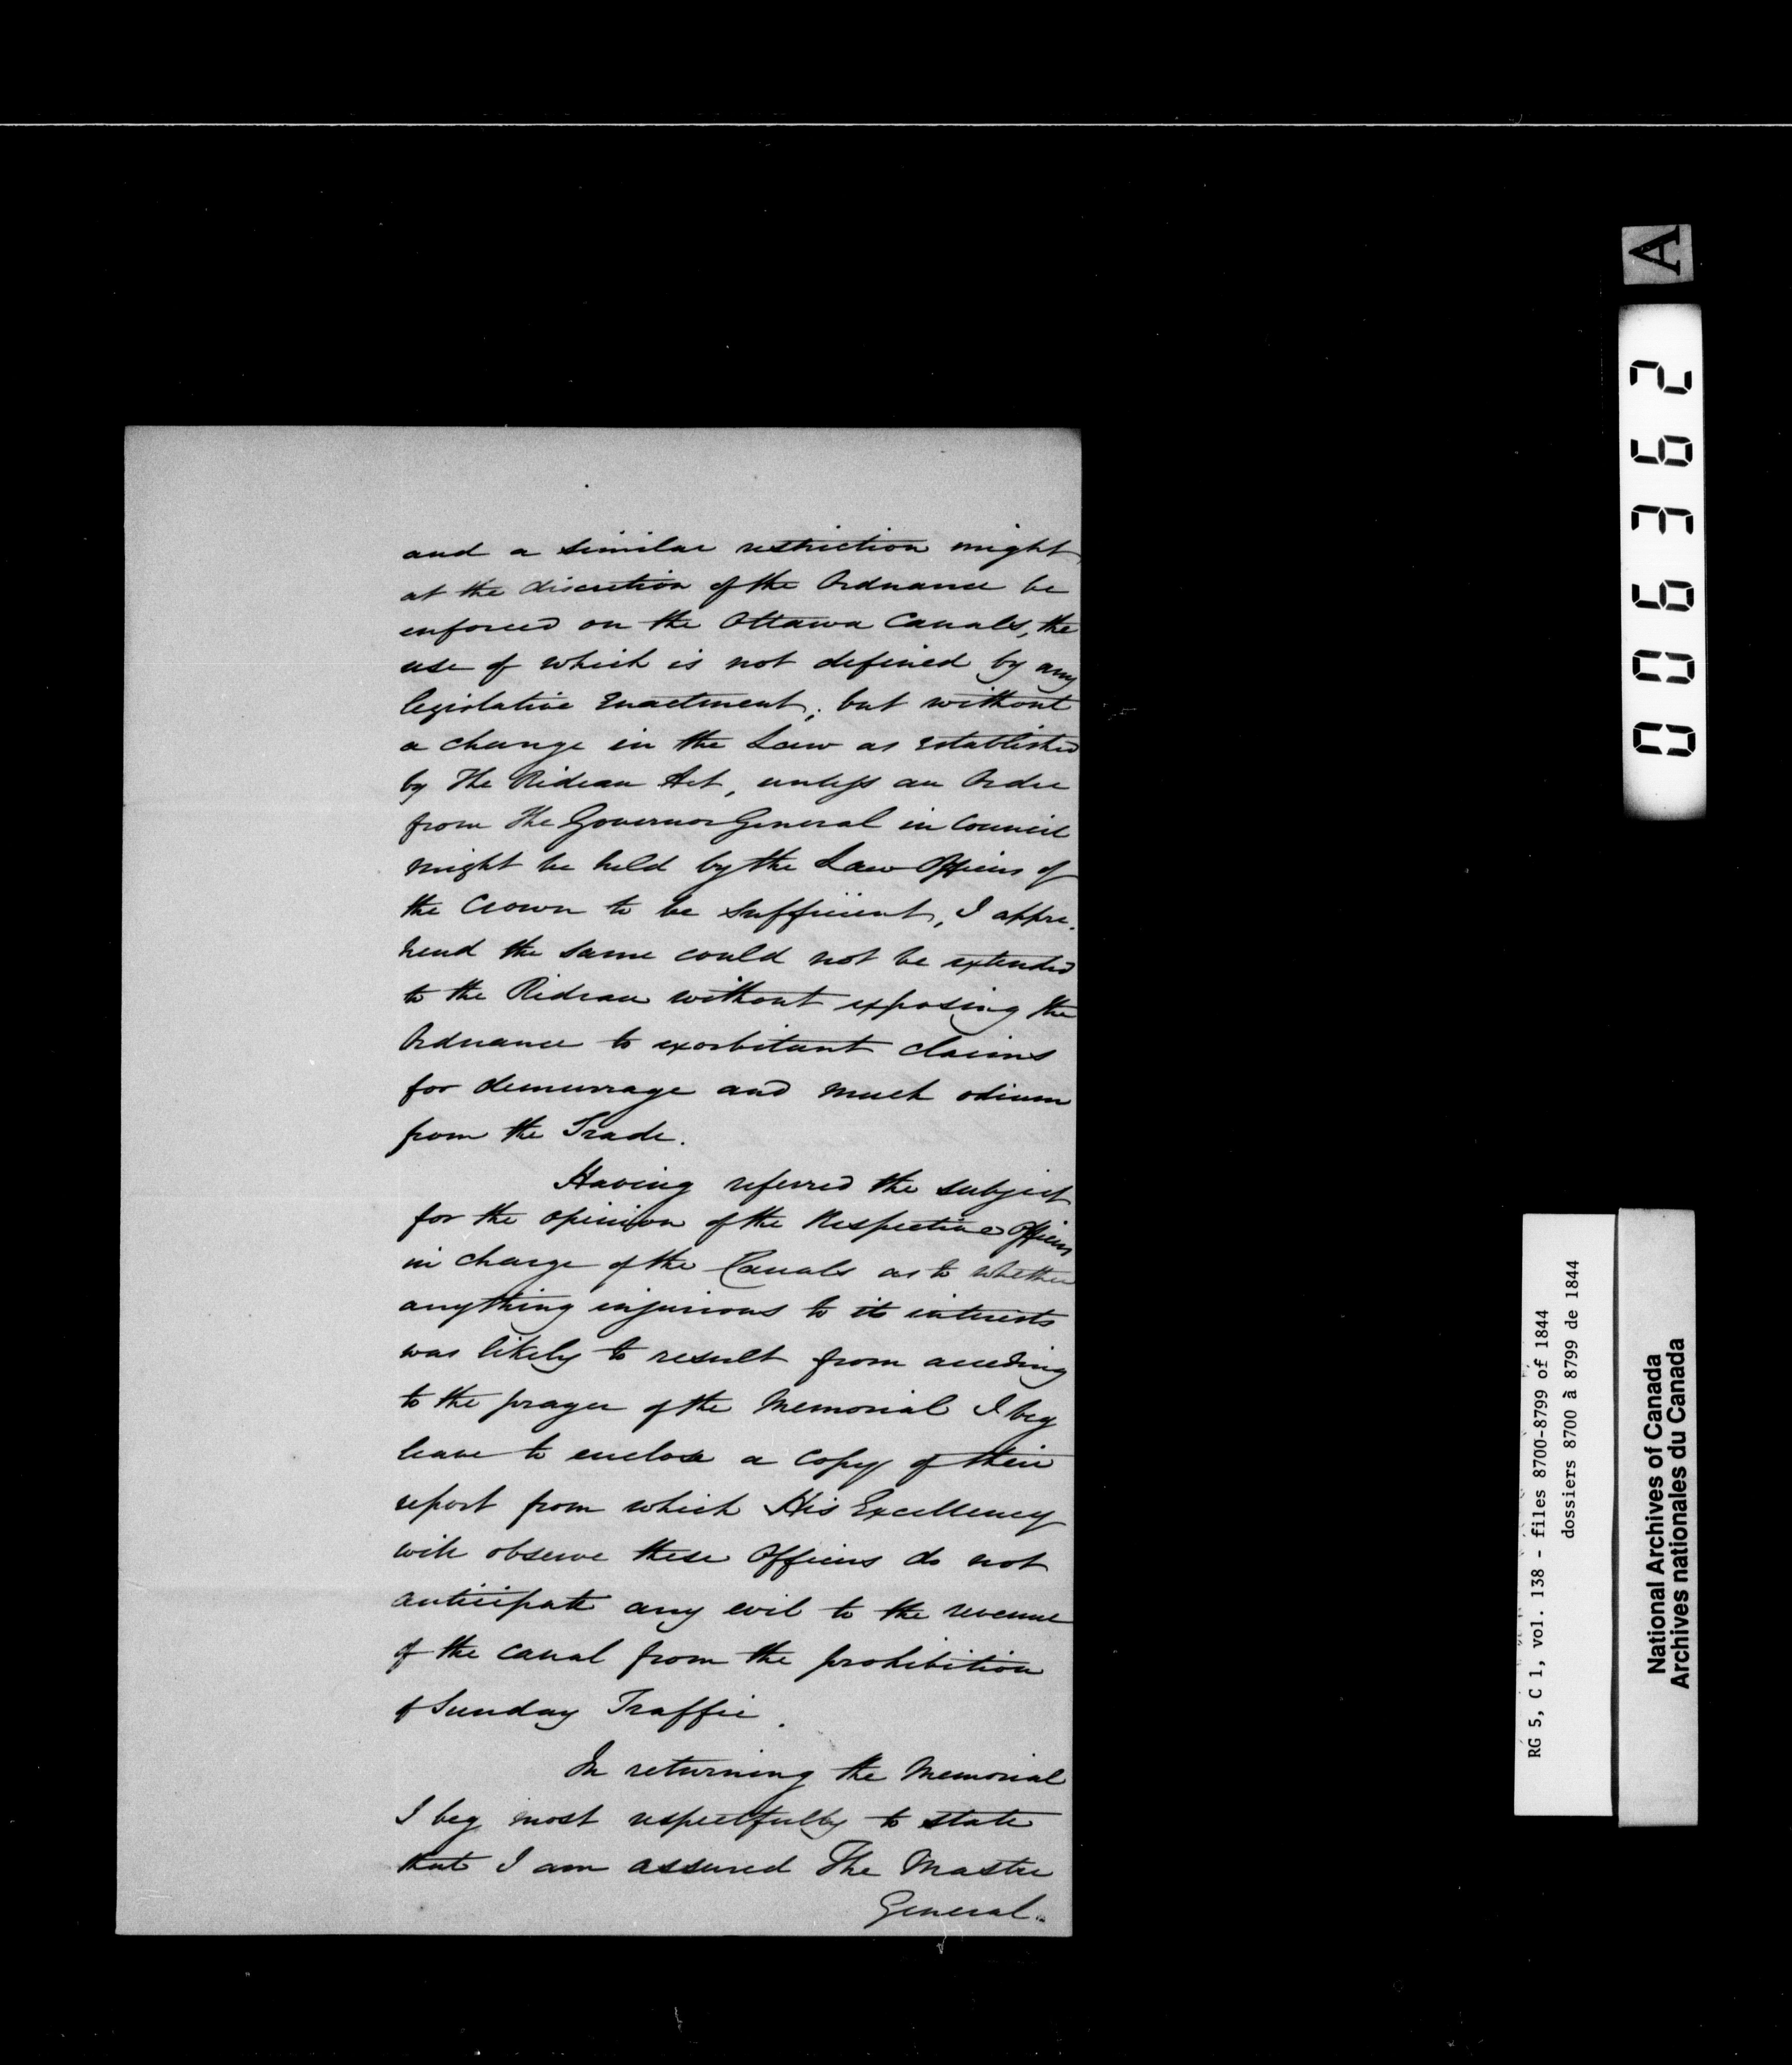 and a similar restriction might
at the discretion of the Ordnance be
enforced on the Ottawa Canals, the
use of which is not defined by any
legislative Enactment; but without
a change in the Law as established
by The Rideau Act, unless an Order
from The Governor General in Council
might be held by the Law Officers of
the Crown to be sufficient, I appre-
hend the same could not be extended
to the Rideau without exposing the
Ordnance to exorbitant claims
for demurrage and much odium
from the Trade.
Having referred the subject
for the opinion of the Respective Officers
in charge of the Canals as to whether
anything injurious to its interests
was likely to result from acceding
to the prayer of the Memorial I beg
leave to enclose a copy of their
report from which His Excellency
will observe these Officers do not
anticipate any evil to the revenue
of the canal from the prohibition
of Sunday Traffic.
In returning the Memorial
I beg most respectfully to state
that I am assured The Master
General..
A
006362
RG 5, C 1, vol. 138 - files 8700-8799 of 1844
dossiers 8700 à 8799 de 1844
National Archives of Canada
Archives nationales du Canada